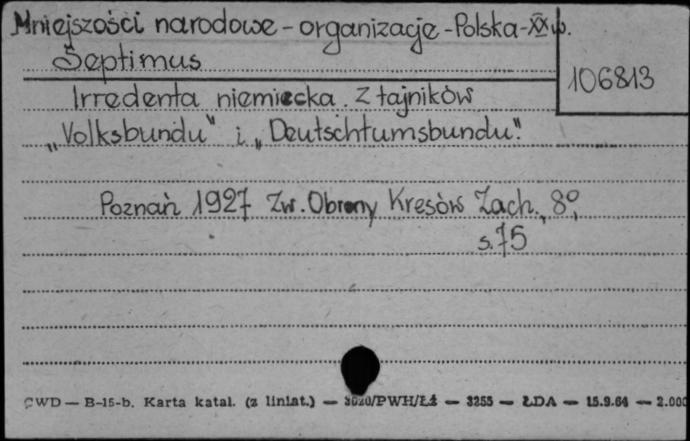 Mniejszości narodowe - organizacje - Polska - XX w.
Septimus
106813
Irredenta niemiecka. Z tajników
„Volksbundu" i „Deutschtumsbundu".
Poznań 1927 Zw. Obrony Kresów Zach., 8°,
s. 75
CWD — B-15-b. Karta katal. (z liniat.) — 3020/PWH/Łź — 3255 — ŁDA — 15.9.64 — 2.000